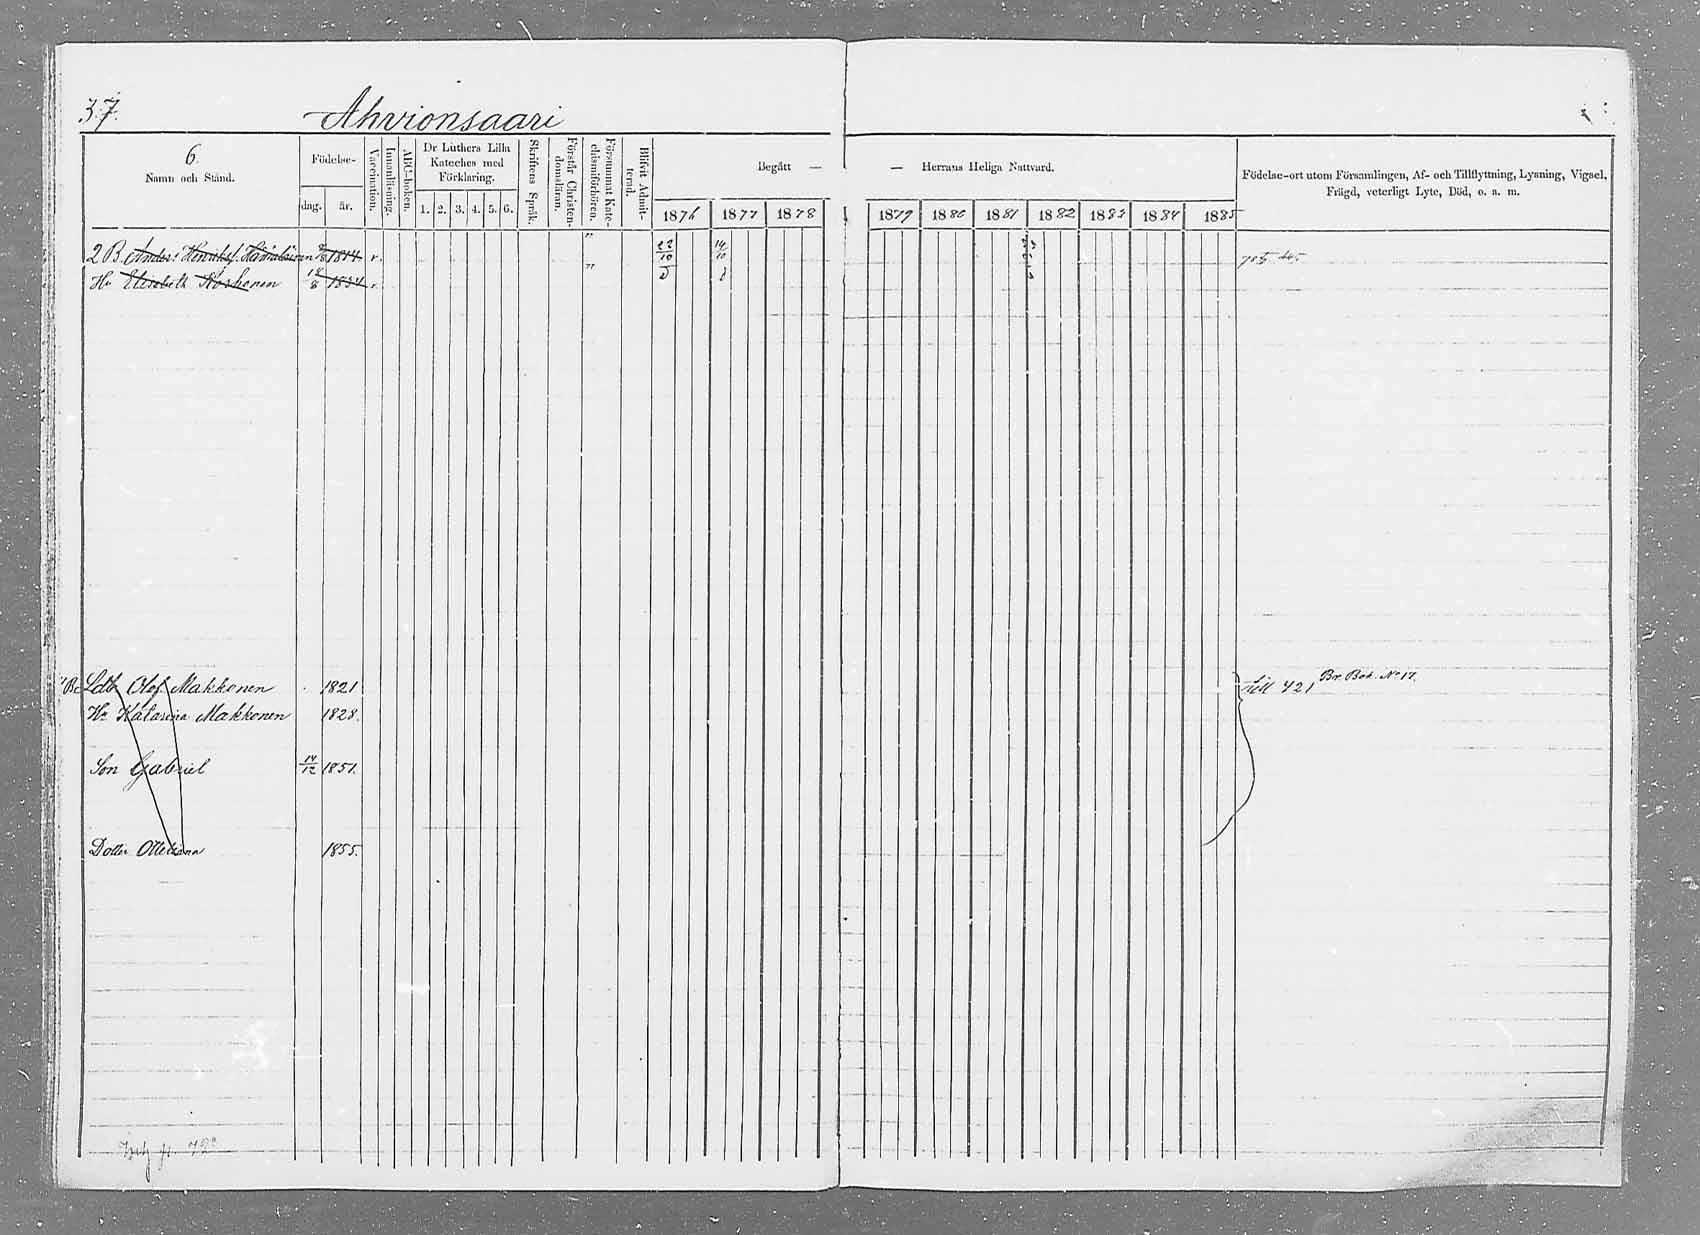 37.
Ahvionsaari
6.
Namn och Stånd.
Födelse-
dag. år.
Vaccination.
Innanläsning.
ABC-boken.
Dr Luthers Lilla Kateches med Förklaring.
1. 2. 3. 4. 5. 6.
Skriftens Språk.
Förstår Christendomsläran.
Försummat Katechismiförhören.
Blifvit Admitterad.
Begått — — Herrans Heliga Nattvard.
1876 1877 1878 1879 1880 1881 1882 1883 1884 1885
Födelse-ort utom Församlingen, Af- och Tillflyttning, Lysning, Vigsel,
Frägd, veterligt Lyte, Död, o. a. m.
2 B. Anders Henriksf. 1814 v.
Hu Elisabeth Koskonen 1834 v.
Ldb Olof Makkonen 1821 till 421 Br. Bok. No 17.
Hu Katarina Makkonen 1828.
Son Gabriel 14/12 1851.
Dotter 1855.